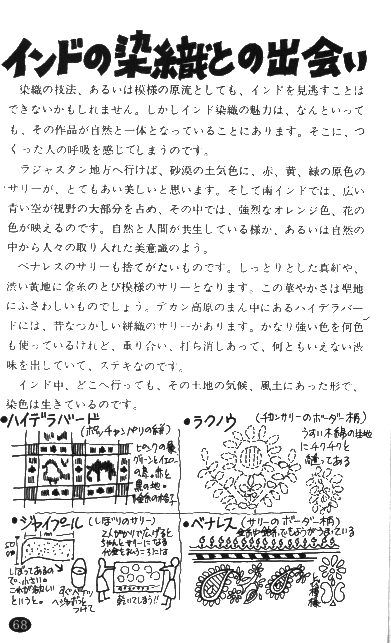 インドの染織との出会い
染織の技法、あるいは模様の原流としても、インドを見逃すことは
できないかもしれません。しかしインド染織の魅力は、なんといって
も、その作品が自然と一体となっていることにあります。そこに、つ
くった人の呼吸を感じてしまうのです。
ラジャスタン地方へ行けば、砂漠の土気色に、赤、黄、緑の原色の
サリーが、とてもあい美しいと思います。そして南インドでは、広い
青い空が視野の大部分を占め、その中では、強烈なオレンジ色、花の
色が映えるのです。自然と人間が共生している様か、あるいは自然の
中から人々の取り入れた美意識のよう。
ベナレスのサリーも捨てがたいものです。しっとりとした真紅や、
渋い黄地に金糸のとび模様のサリーとなります。この華やかさは聖地
にふさわしいものでしょう。デカン高原のまん中にあるハイデラバー
ドには、昔なつかしい絣織のサリーがあります。かなり強い色を何色
も使っているけれど、重り合い、打ち消しあって、何ともいえない渋
味を出していて、ステキなのです。
インド中、どこへ行っても、その土地の気候、風土にあった形で、
染色は生きているのです。
●ハイデラバード
(ポチャンパリの絣)
ピンクの象
グリーンとイエロー
の鳥。赤と
黒の地。
●ラクノウ
(チカンサリーのボーダー柄)
うすい木綿の生地
にチクチクと
縫ってある
●ジャイプール
(しぼりのサリー)
2人がかりで広げると
ちゃんとサリーになる
しぼってあるの
で、小さい。
これがほしい
というと。
乾いてしまう!!
●ベナレス
(サリーのボーダー柄)
68